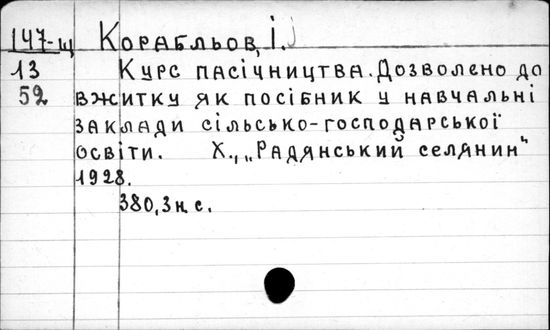 147-щ Корабльов, І.
13 Курс пасічництва. Дозволено до
52 вжитку як посібник у навчальні
заклади сільсько-господарської
освіти. Х., „Радянський селянин"
1928.
380, 3 н. с.